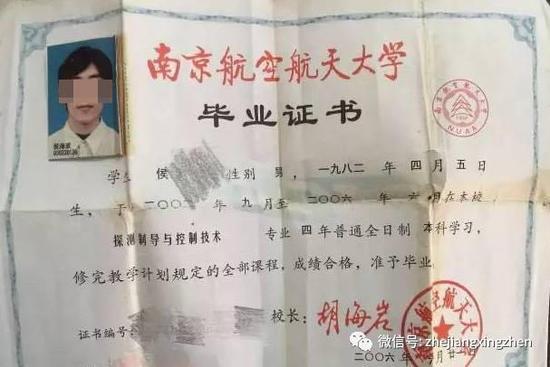 南京航空航天大学
毕业证书
NUAA
学生 侯 性别 男，一九八二 年 四 月 五 日
生，于二〇〇二 年 九 月至二〇〇六 年 六 月在本校
探测制导与控制技术 专业 四 年普通全日制 本科学习，
修完教学计划规定的全部课程，成绩合格，准予毕业。
校长：胡海岩
证书编号：
二〇〇六 月廿一日
微信号: zhejiangxingzhen